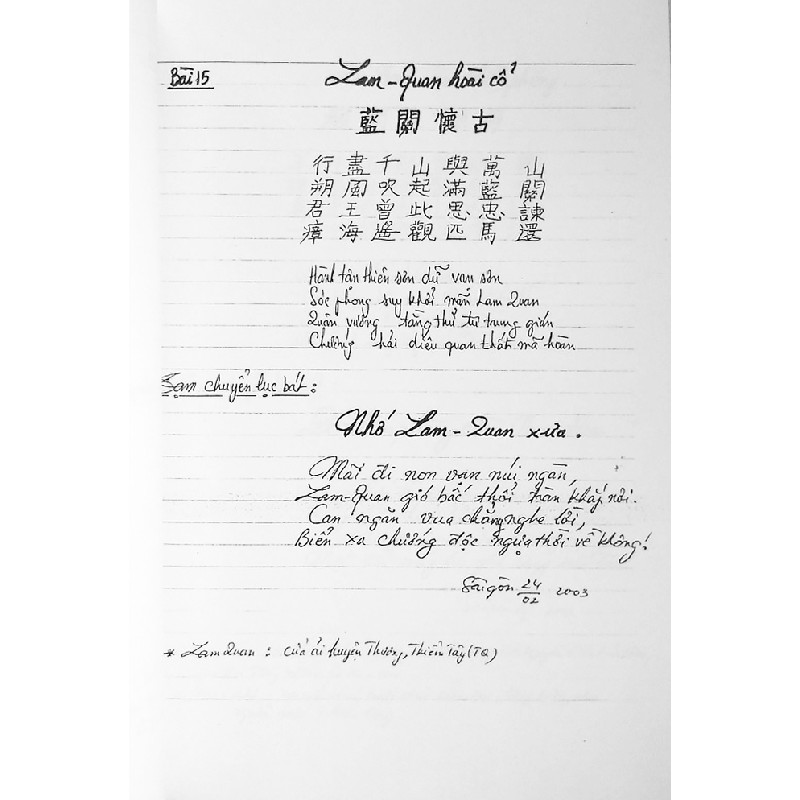 Bài 15
Lam-Quan hoài cổ
藍關懷古
行盡千山與萬山
朔風吹起滿藍關
君王曾此思忠諫
瘴海遙觀匹馬還
Hành tận thiên sơn dữ vạn sơn
Sóc phong suy khởi mãn Lam Quan
Quân vương tằng thử tư trung gián
Chướng hải diêu quan thất mã hoàn
Tạm chuyển lục bát:
Nhớ Lam-Quan xưa.
Mãi đi non vạn núi ngàn,
Lam-Quan gió bấc thổi tràn khắp nơi.
Can ngăn vua chẳng nghe lời,
Biển xa chướng độc ngựa thôi về không!
Sàigòn 24/02 2003
* Lam Quan: Cửa ải huyện Thương, Thiểm Tây (TQ)